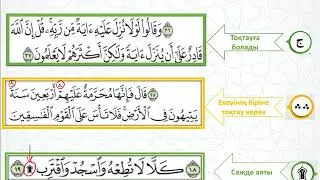 وَقَالُوا۟ لَوْلَا نُزِّلَ عَلَيْهِ ءَايَةٌ مِّن رَّبِّهِۦ ۚ قُلْ إِنَّ ٱللَّهَ
قَادِرٌ عَلَىٰٓ أَن يُنَزِّلَ ءَايَةً وَلَٰكِنَّ أَكْثَرَهُمْ لَا يَعْلَمُونَ ٣٧
Тоқтауға
болады
ج
قَالَ فَإِنَّهَا مُحَرَّمَةٌ عَلَيْهِمْ ۛ أَرْبَعِينَ سَنَةً ۛ
يَتِيهُونَ فِى ٱلْأَرْضِ ۚ فَلَا تَأْسَ عَلَى ٱلْقَوْمِ ٱلْفَٰسِقِينَ
Екеуінің біріне
тоқтау керек
١٨ كَلَّا لَا تُطِعْهُ وَٱسْجُدْ وَٱقْتَرِب ۩ ١٩
Сәжде аяты